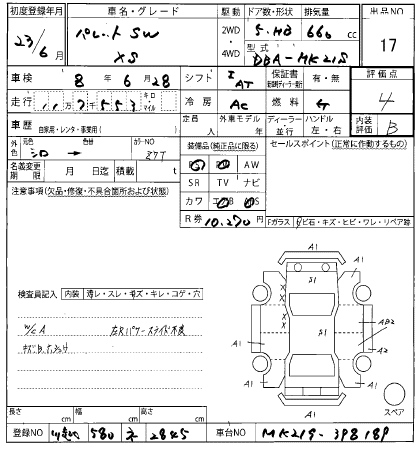 初度登録年月 車名・グレード 駆動 ドア数・形状 排気量 出品NO
23/6 パレットSW 2WD・4WD 5.HB 660 cc 17
XS 型式 DBA-MK21S
車検 8年6月28 シフト I AT 保証書 有・無 評価点
走行 キロ マイル 冷房 AC 燃料 4
車歴 自家用・レンタ・事業用( ) 定員 人 外車モデル 年 ディーラー・並行 ハンドル 左・右 内装評価 B
外色 元色 シロ → 色替 カラーNO Z7T 装備品(純正品に限る) セールスポイント(正常に作動するもの)
名義変更期限 月 日迄 積載 t AW
SR TV ナビ
注意事項(欠品・修復・不具合箇所および状態) カワ
R券 10,270円 Fガラス 飛石・キズ・ヒビ・ワレ・リペア跡
検査員記入 内装 薄レ・スレ・キズ・キレ・コゲ・穴
W/C A 左Rパワースライド不良
A1 A1 S1 S1 A1 AB2 A2 A1 A1
スペア
長さ cm 幅 cm 高さ cm
登録NO 580 2845 車台NO MK21S-398189